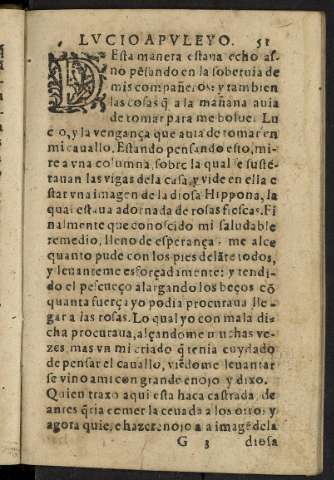 LVCIO APVLEYO. 51
DEsta manera estaua echo as-
no pẽsando en la soberuia de
mis compañeros: y tambien
las cosas q̃ a la mañana auia
de tomar para me boluer Lu
cio, y la vengança que auia de tomar en
mi cauallo. Estando pensando esto, mi-
re a vna columna, sobre la qual se sustẽ-
tauan las vigas dela casa, y vide en ella e
star vna imagen de la diosa Hippona, la
qual estaua adornada de rosas frescas. Fi
nalmente que conoscido mi saludable
remedio, lleno de esperança, me alce
quanto pude con los pies delãte todos,
y leuanteme esforçadamente: y tendi-
do el pescueço alargando los beços cõ
quanta fuerça yo podia procuraua lle-
gar a las rosas. Lo qual yo con mala di-
cha procuraua, alçandome muchas ve-
zes mas vn mi criado q̃ tenia cuydado
de pensar el cauallo, viẽdome leuantar
se vino a mi con grande enojo y dixo.
Quien traxo aqui esta haca castrada, de
antes q̃ria comer la ceuada a los otros y
agora quiere hazer enojo a la imagẽ dela
G 3 diosa